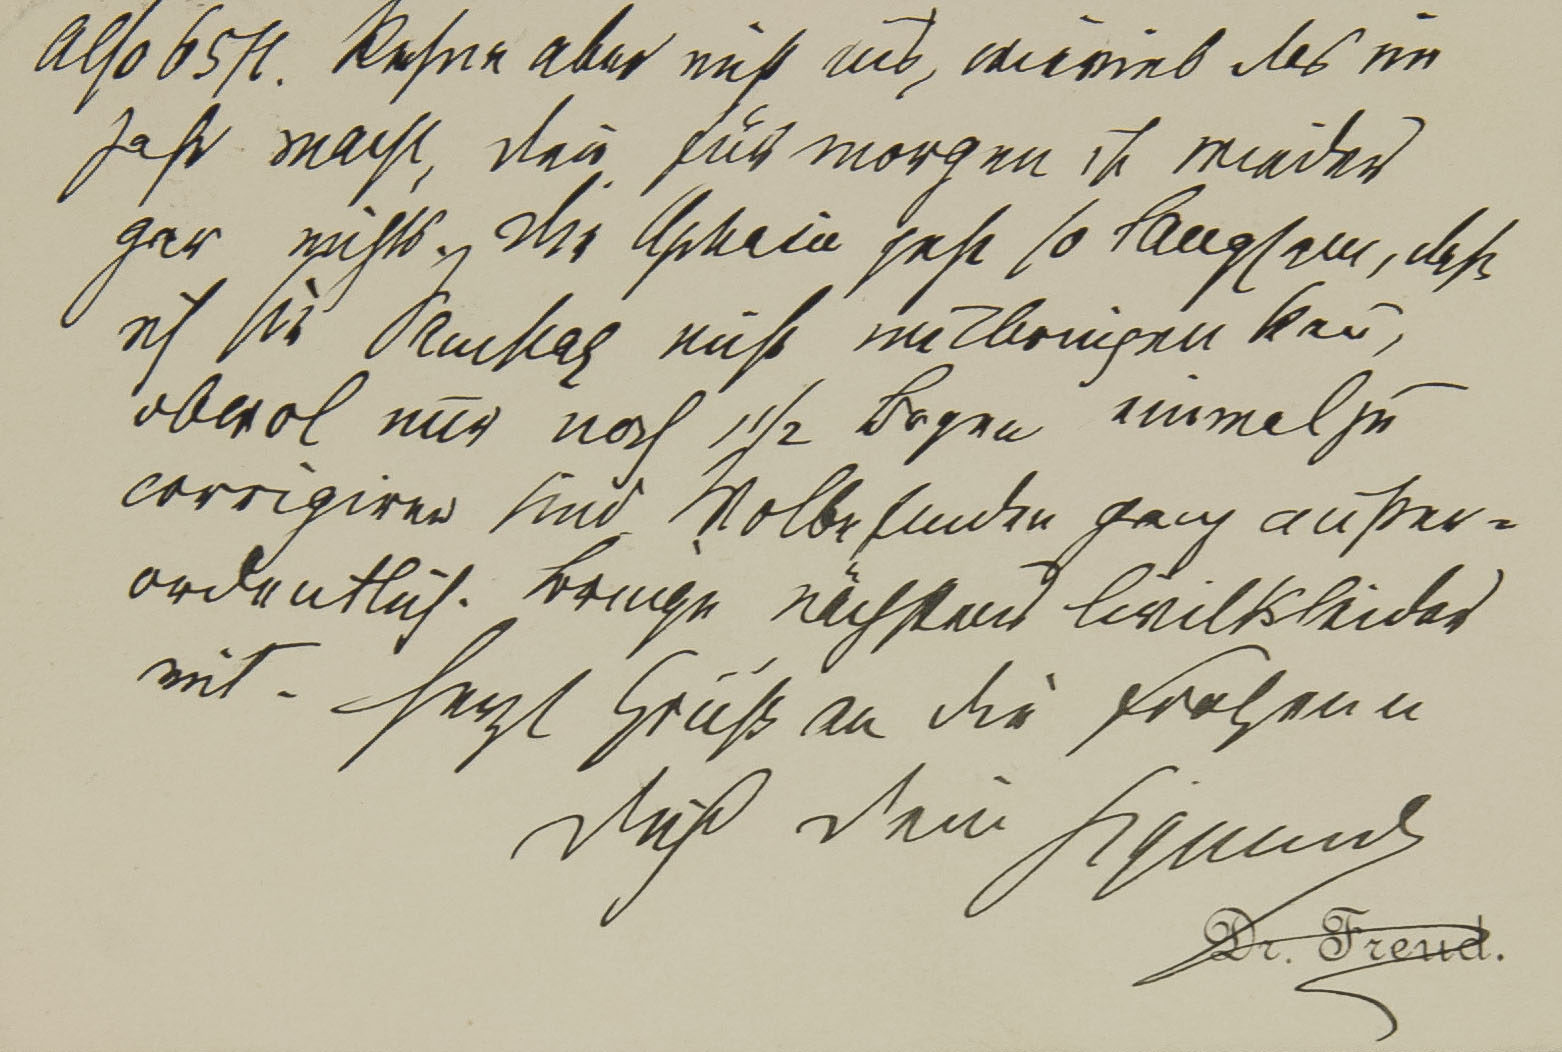 Also 65 fl. Rechne aber nicht aus, wieviel das im
Jahr macht, denn für morgen ist wieder
gar nichts. Die Aphasie geht so langsam, daß
ich sie Samstag nicht mitbringen kann,
obwol nur noch 1 1/2 Bogen einmal zu
corrigiren sind. Wolbefinden ganz außer-
ordentlich. Bringe nächstens Civilkleider
mit. Herzl Gruß an die
dich dein Sigmund
Dr. Freud.